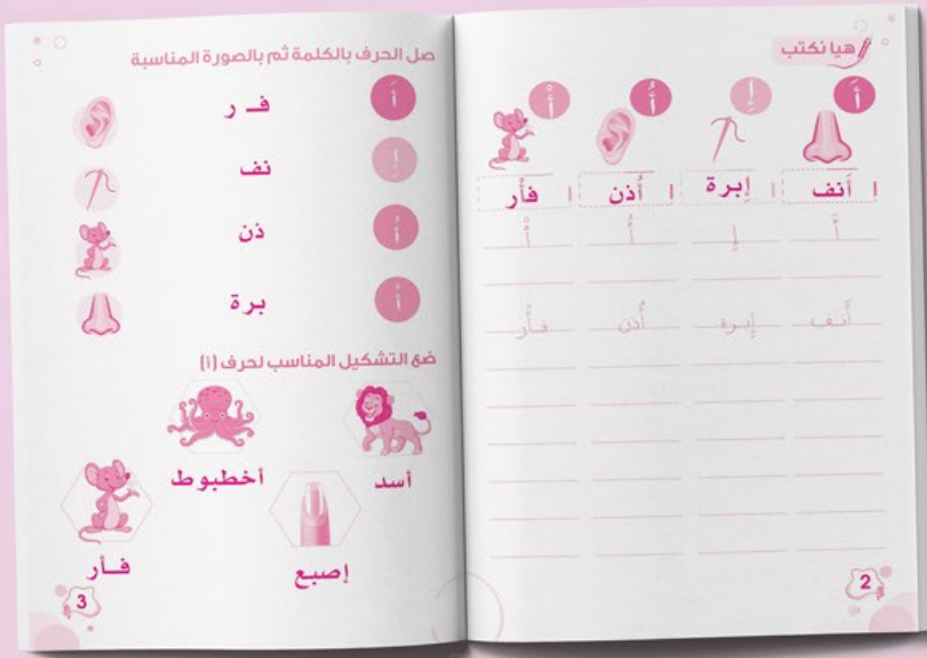 هيا نكتب
أَ إِ أُ أْ
أَنف إِبرة أُذن فأْر
أَ إِ أُ أْ
أَنف إِبرة أُذن فأْر
2
صل الحرف بالكلمة ثم بالصورة المناسبة
أَ فـ ر
إِ نف
أُ ذن
أْ برة
ضع التشكيل المناسب لحرف (أ)
أسد
أخطبوط
إصبع
فـأر
3